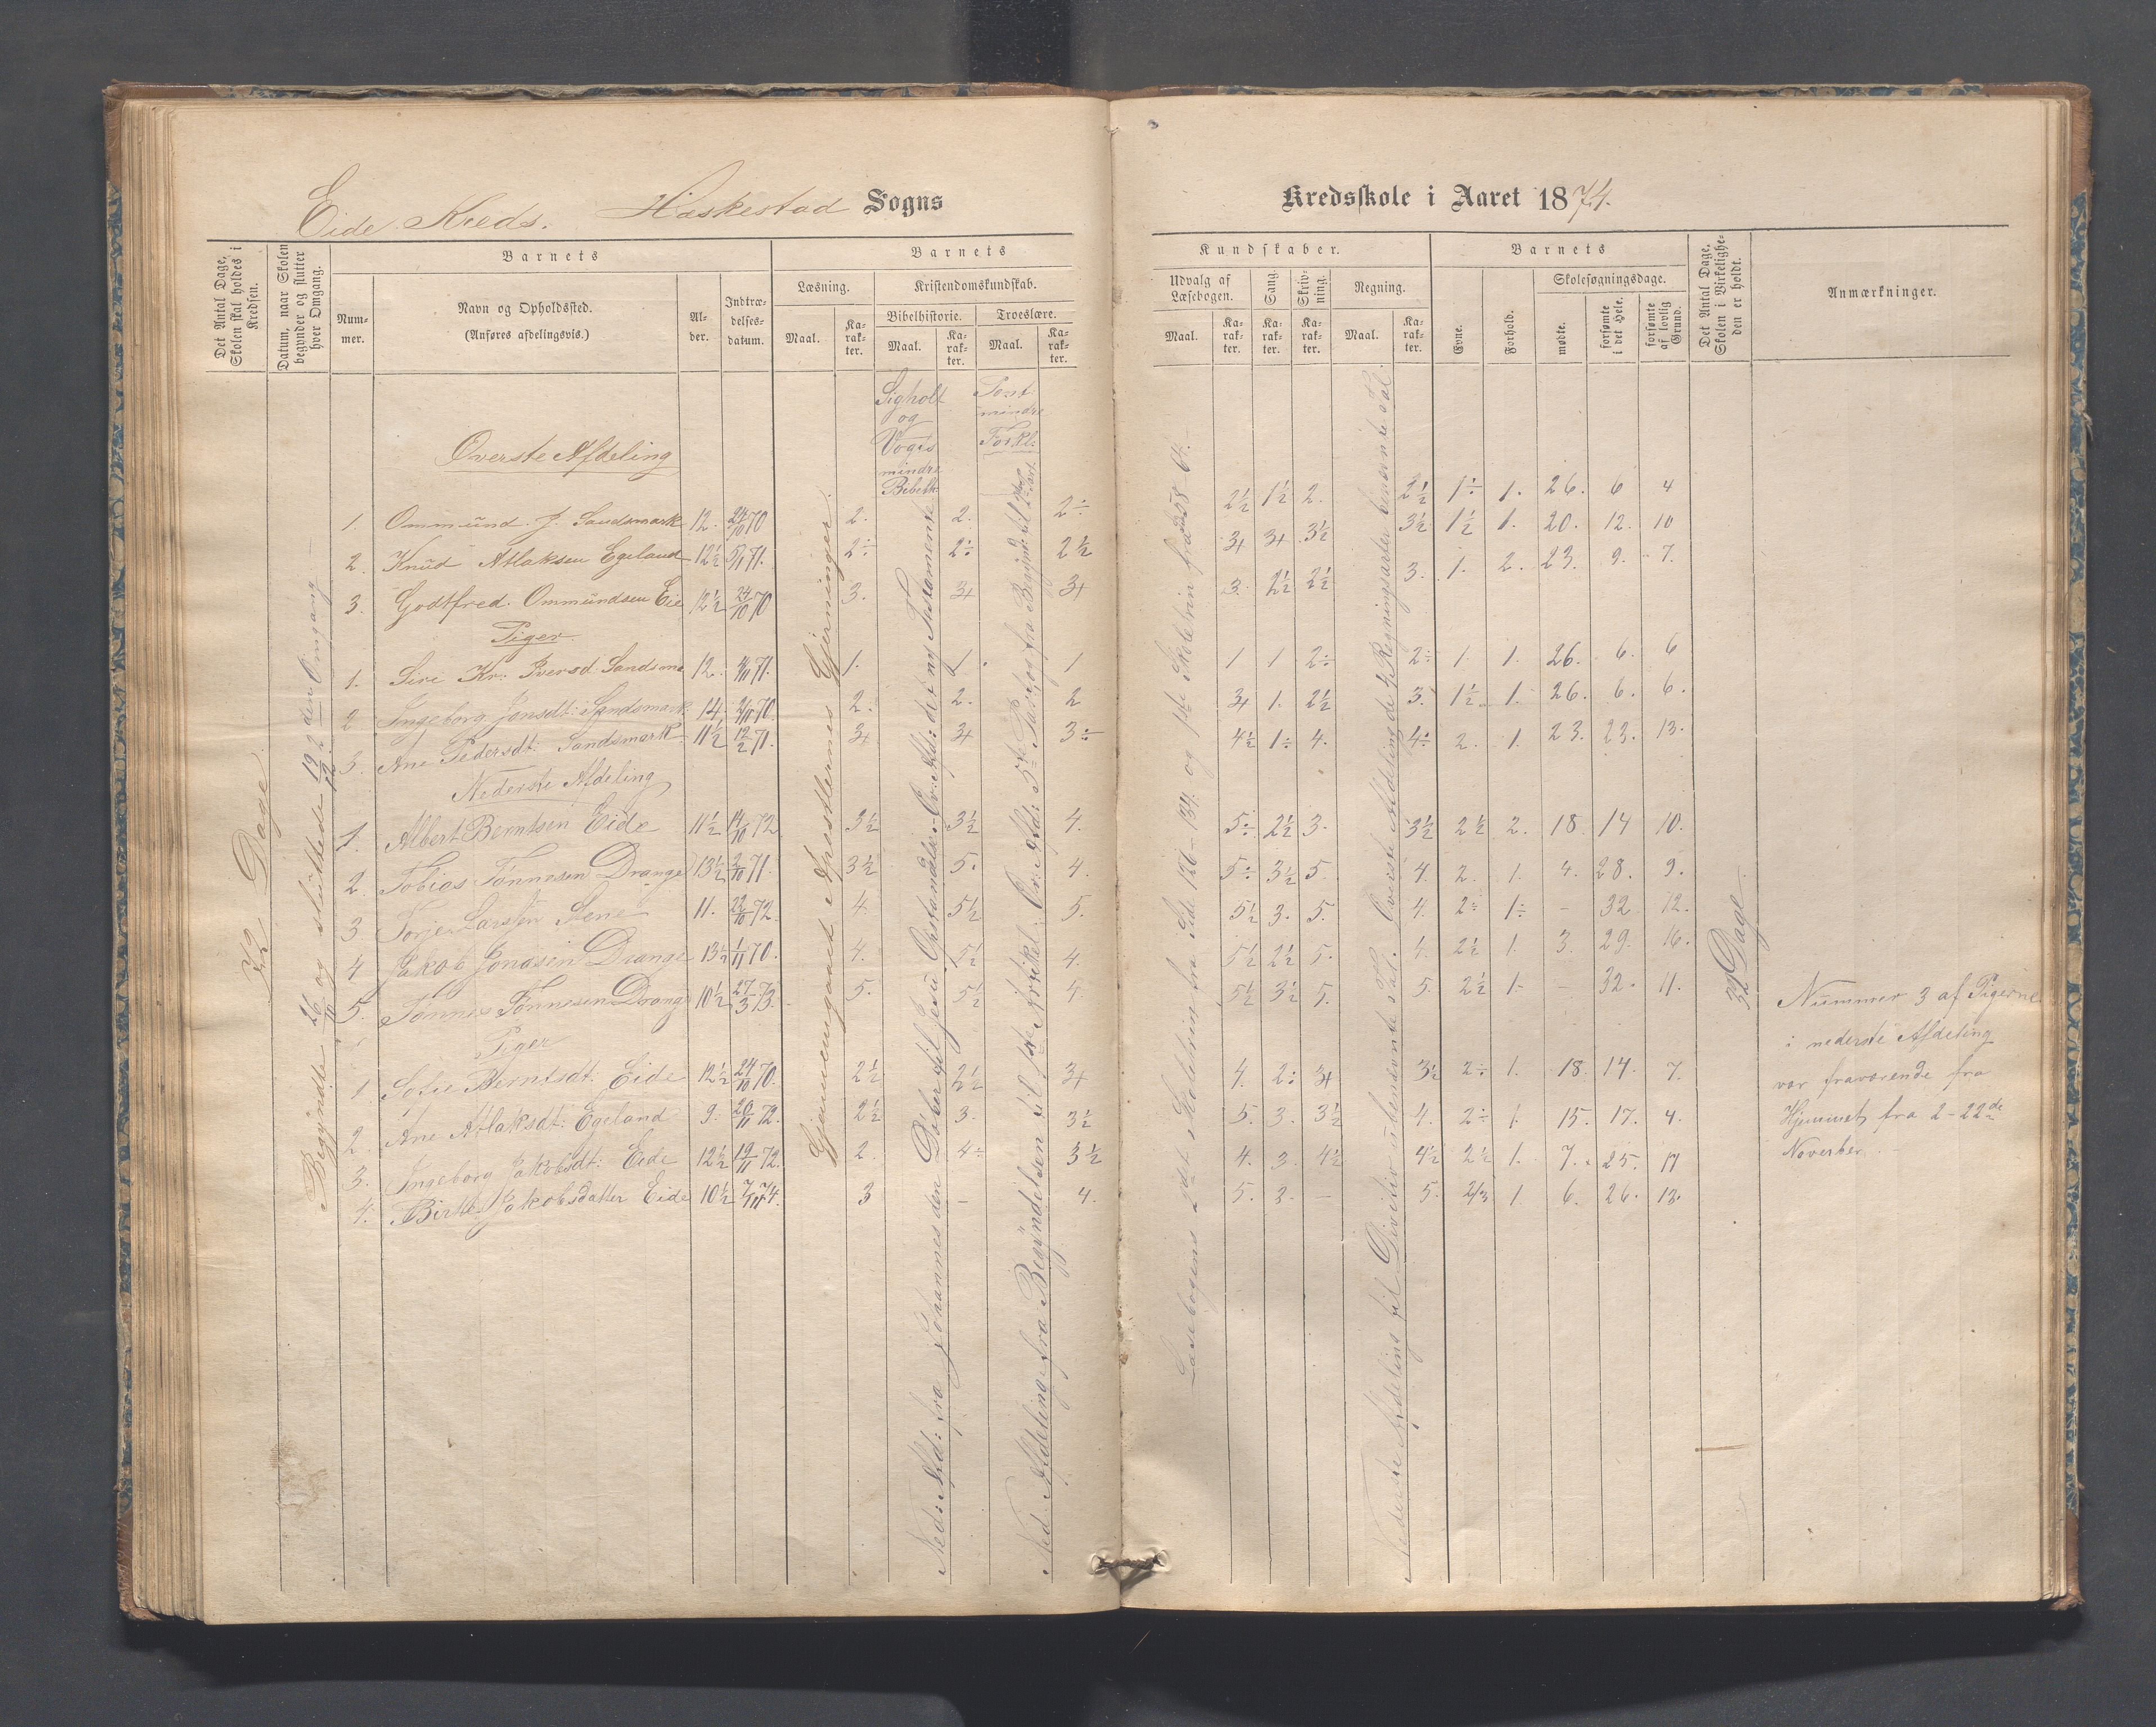 Eide Kreds. Haskestad Sogns
Kredsskole i Aaret 1874.
Det Antal Dage, Skolen skal holdes i Kredsen.
Datum, naar Skolen begynder og slutter hver Omgang.
Barnets
Nummer.
Navn og Opholdssted.
(Anføres afdelingsvis.)
Alder.
Indtrædelsesdatum.
Barnets
Læsning.
Maal.
Karakter.
Kristendomskundskab.
Bibelhistorie.
Maal.
Karakter.
Troeslære.
Maal.
Karakter.
Kundskaber.
Udvalg af Læsebogen.
Maal.
Karakter.
Sang.
Karakter.
Skrivning.
Karakter.
Regning.
Maal.
Karakter.
Barnets
Evne.
Forhold.
Skolesøgningsdage.
mødte.
forsømte i det Hele.
forsømte af lovlig Grund.
Det Antal Dage, Skolen i Virkeligheden er holdt.
Anmærkninger.
Dage
Begyndte 26/11 og sluttede 19/12 2den Omgang
Gjennemgaaet Apostlernes Gjerninger.
og
Vogts
mindre
mindre
Forkl:
Ned: Afd: fra Johannes den Døber til Jesu Opstandelse. Ov: Afd: det ny Testamente
Ned: Afdeling fra Begyndelsen til 1ste Artikel. Ov: Afd: 5te Part
Læsebogens 2det Skoletrin fra Side 126-134. og 1ste Skoletrin fra 58-64.
Nederste Afdeling til Division i ubenævnte Tal. Øverste Afdeling de 4 Regningsarter i benævnte Tal.
Øverste Afdeling
1. Ommünd J. Sandsmark 12. 24/10 70 2. 2. 2÷ 2½ 1½ 2. 2½ 1÷ 1. 26. 6 4
2. Knüd Atlaksen Egeland 12½ 5/11 71. 2÷ 2÷ 2½ 3+ 3+ 3½ 3½ 1½ 1. 20. 12. 10
3. Godtfred. Ommündsen Eie 12½ 24/10 70 3. 3+ 3+ 3. 2½ 2½ 3. 1. 2. 23. 9. 7.
Piger
1. Sire Kr: Iversd Sandsma 12. 4/11 71. 1. 1. 1 1 1 2÷ 2÷ 1. 1. 26. 6. 6
2. Ingeborg Jonsdt: Sandsmark. 14. 2/11 70. 2. 2. 2 3+ 1. 2½ 3. 1½ 1. 26. 6. 6.
3. Ane Pedersdt: Sandsmark 11½ 12/2 71. 3+ 3+ 3÷ 4½ 1÷ 4. 4÷ 2. 1. 23. 23. 13.
Nederste Afdeling
1. Albert Berntsen Eide 11½ 14/10 72 3½ 3½ 4. 5÷ 2½ 3. 3½ 2½ 2. 18. 14 10.
2. Tobias Tønnesen Drange 13½ 2/10 71. 3½ 5. 4. 5÷ 3½ 5. 4. 2. 1. 4. 28. 9.
3 Torjer Larsen Stene 11. 22/10 72. 4 5½ 5. 5½ 3. 5. 4. 2÷ 1÷ – 32 12.
4 Jakob Jonasen Drange 13½ 1/11 70. 4. 5½ 4. 5½ 2½ 5. 4. 2½ 1. 3. 29. 16.
5. Tønnes Tønnesen Drange 10½ 27/3 73. 5. 5½ 4. 5½ 3½ 5. 5. 2½ 1. – 32. 11.
Piger
1. Sofie Berntsdt: Eide 12½ 24/10 70. 2½ 2½ 3+ 4. 2÷ 3+ 3½ 2÷ 1. 18. 14. 7.
2. Ane Atlaksdt: Egeland 9. 20/11 72. 2½ 3. 3½ 5. 3. 3½ 4. 2÷ 1. 15. 17. 4.
3. Ingeborg Jakobsdt: Eide 12½ 19/11 72. 2. 4÷ 3½ 4. 3. 4½ 4½ 2½ 1. 7. 25. 17
4. Birte Jakobsdatter Eide 10½ 7/11 74. 3 – 4. 5. 3. – 5. 2/3 1. 6. 26. 13.
32 Dage
Nummer 3 af Pigerne
i nederste Afdeling
var fraværende fra
Hjemmet fra 2-22de
November.